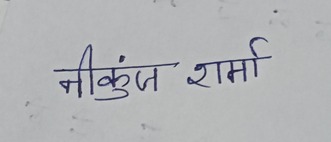 नीकुंज शर्मा